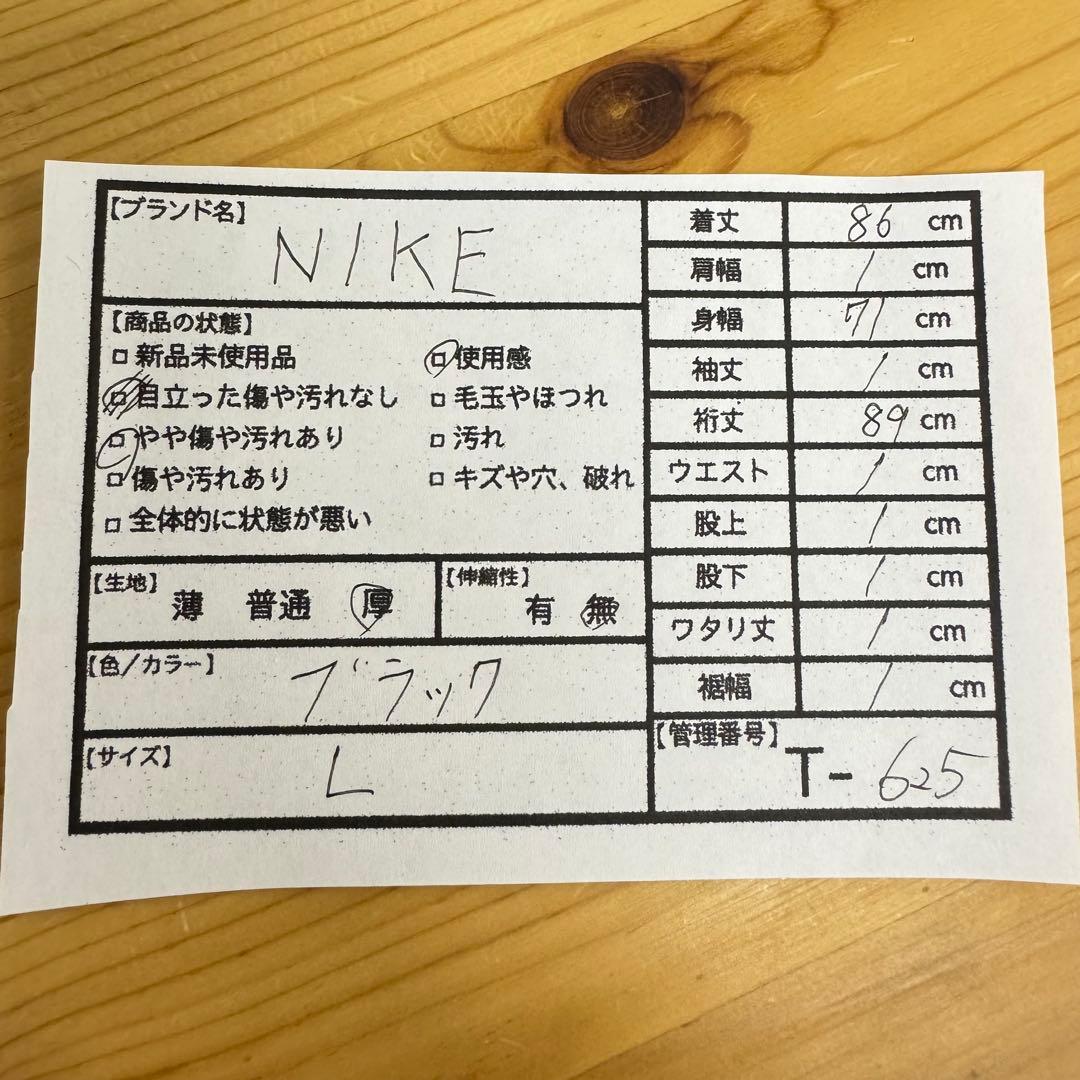 【ブランド名】
NIKE
【商品の状態】
□ 新品未使用品
□ 使用感
□ 目立った傷や汚れなし
□ 毛玉やほつれ
□ やや傷や汚れあり
□ 汚れ
□ 傷や汚れあり
□ キズや穴、破れ
□ 全体的に状態が悪い
【生地】
薄 普通 厚
【伸縮性】
有 無
【色/カラー】
ブラック
【サイズ】
L
着丈 86 cm
肩幅 / cm
身幅 71 cm
袖丈 / cm
裄丈 89 cm
ウエスト / cm
股上 / cm
股下 / cm
ワタリ丈 / cm
裾幅 / cm
【管理番号】
T- 625